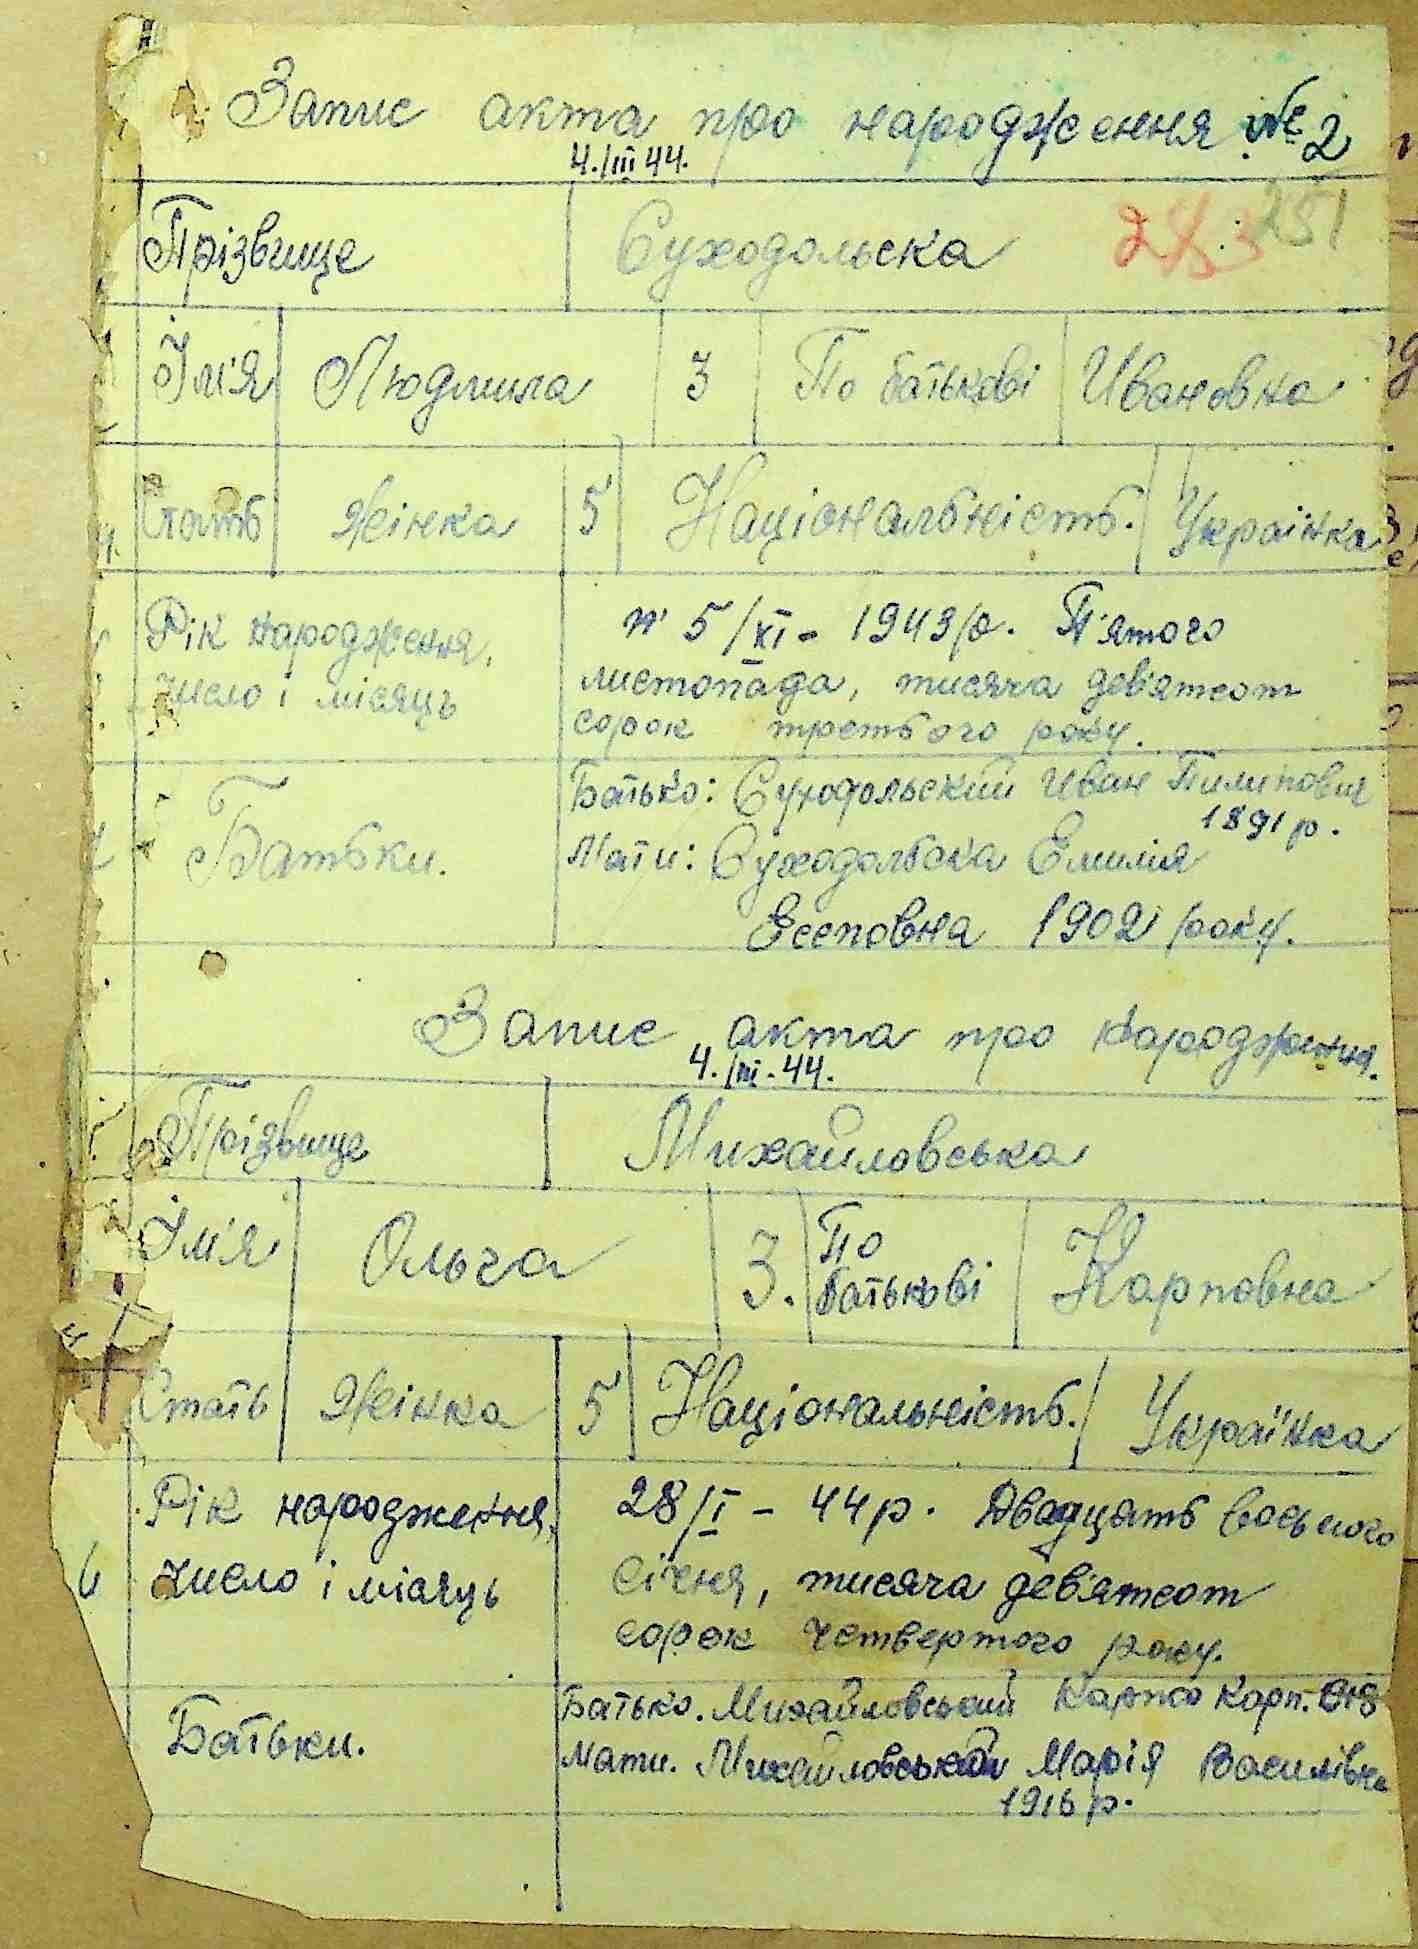 Запис акта про народження № 2
4./III 44.
Прізвище Суходольска 251
Ім'я Людмила 3 По батькові Ивановна
Стать Жінка 5 Національність. Українка
Рік народження, 5/XI - 1943 р. П'ятого
число і місяць листопада, тисяча дев'ятсот
сорок третього року.
Батьки. Батько: Суходольский Иван Пилипович
1891 р.
Мати: Суходольска Емилія
Есеповна 1902 року.
Запис акта про народження.
4./III-44.
Прізвище Михайловська
Ім'я Ольга 3. По батькові Карповна
Стать Жінка 5 Національність. Українка
Рік народження, 28/I - 44 р. Двадцять восьмого
число і місяць січня, тисяча дев'ятсот
сорок четвертого року.
Батьки. Батько. Михайловський Карпо Карп.
Мати. Марія Василівна
1916 р.